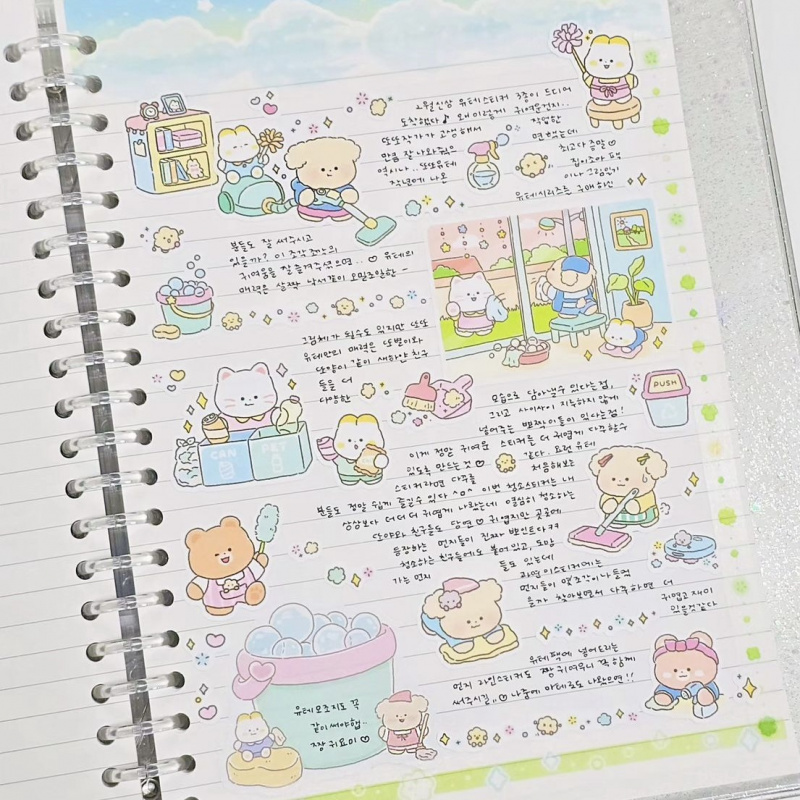 2월신상 유테스티커 3종이 드디어
도착했다♪ 왜 이렇게 귀여운건지..
또또작가가 고생해서 작업한
만큼 잘 나와줬음 면했는데
역시나.. 또또유테 최고다 증말♡
작년에 나온 집이좋아 팩
이나 그림일기
유테시리즈는 구매하신
분들도 잘 써주시고
있을까? 이 조각조각의
귀여움을 잘 즐겨주셨으면.. ♡ 유테의
매력은 살짝 낙서같이 오밀조밀한
그림체가 될수도 있지만 또또
유테만의 매력은 또별이와
또양이 같이 새하얀 친구
들을 더
다양한
모습으로 담아낼수 있다는점,
그리고 사이사이 지루하지 않게
넣어주는 뽀짝이들이 있다는점!
이게 정말 귀여운 스티커를 더 귀엽게 다꾸할수
있도록 만드는 것♡ 같다. 요런 유테
스티커라면 다꾸를 처음해보는
분들도 정말 쉽게 즐길수 있다 ^o^ 이번 청소스티커는 내
상상보다 더더더 귀엽게 나왔는데 열심히 청소하는
단야와 친구들도 당연♡ 귀엽지만 곳곳에
등장하는 먼지들이 진짜 뽀인트다ㅋㅋ
청소하는 친구들에도 붙어있고, 도망
가는 먼지들도 있는데
과연 이스티커에는
먼지들이 몇조각이나 들었
을까 찾아보면서 다꾸하면 더
귀엽고 재미
있을것같다
유테팩에 넣어드리는
먼지 라인스티커도 짱 귀여우니 꼭 함께
써주시길,,♡ 나중에 마테로도 나왔으면!!
CAN
PET
PUSH
유테모조지도 꼭
같이써야햅..
짱 귀요미♡